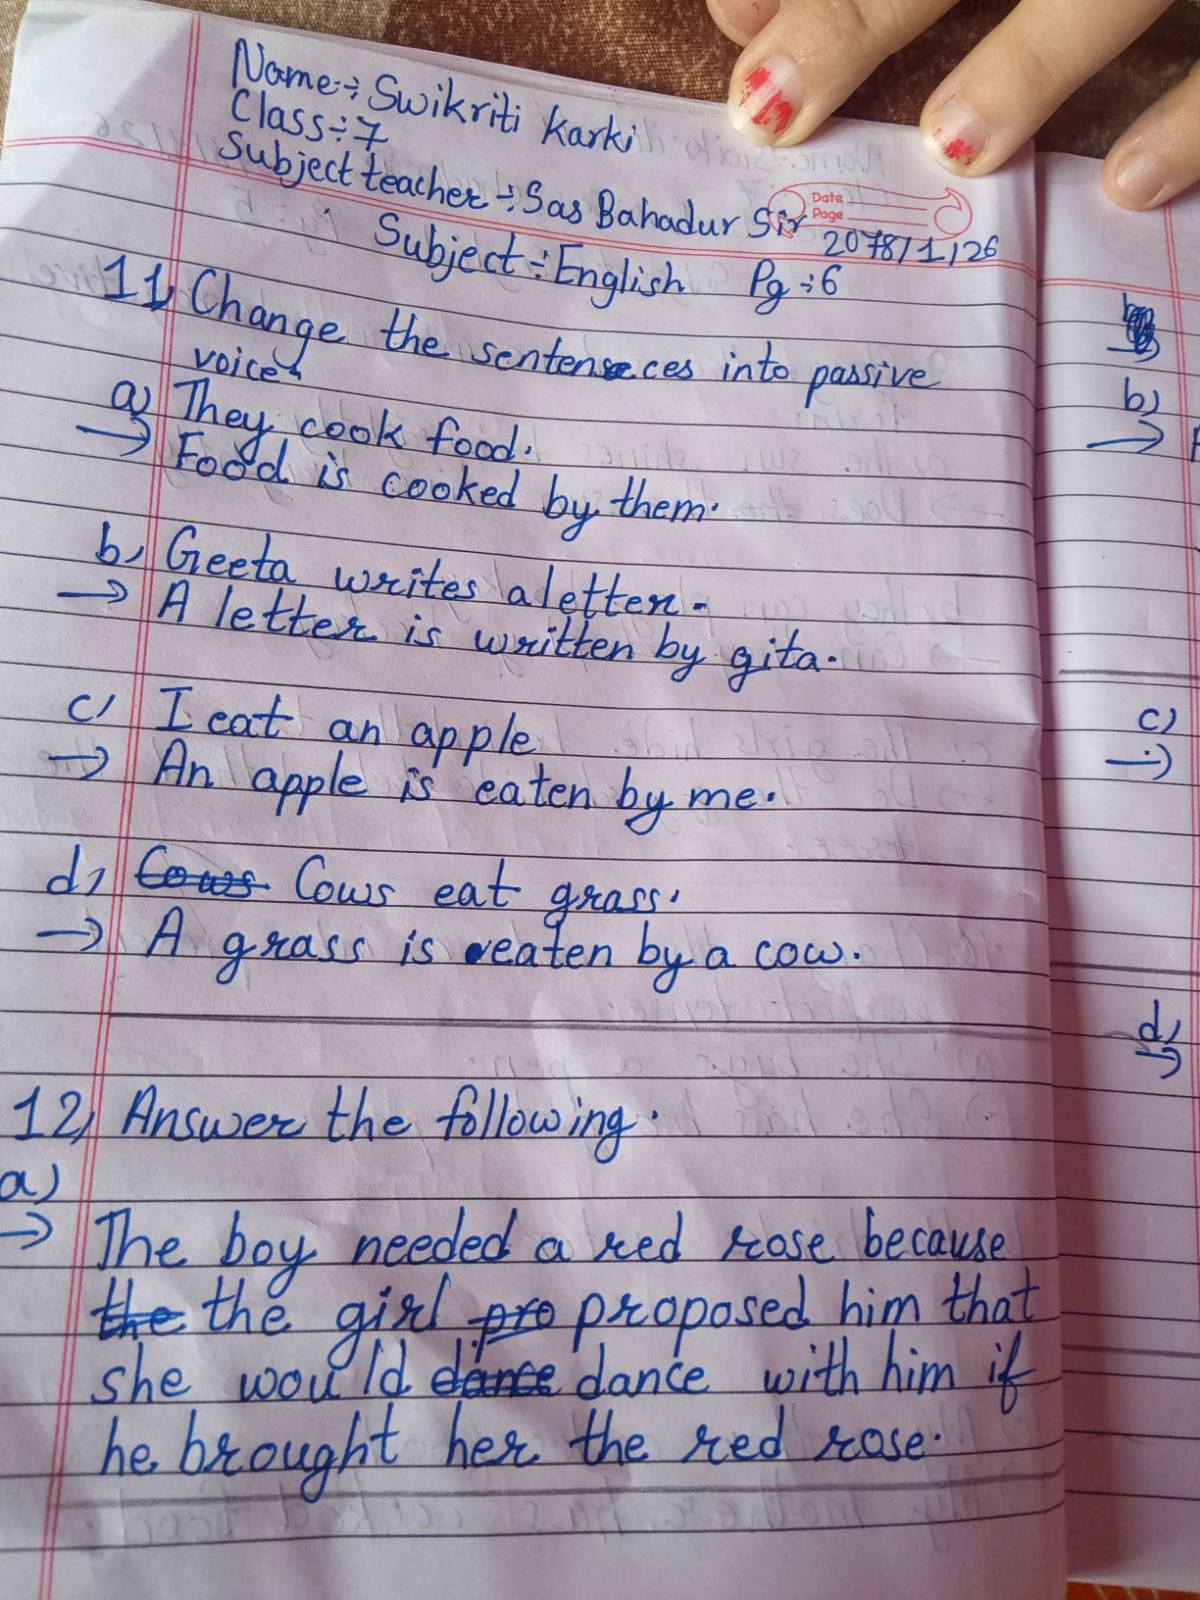 Name:- Swikriti Karki
Class:- 7
Subject teacher:- Sas Bahadur Sir
Date
Page
2078/1/26
Subject:- English Pg:- 6
11, Change the sentences into passive
voice.
a) They cook food.
→ Food is cooked by them.
b, Geeta writes a letter.
→ A letter is written by gita.
c, I eat an apple
→ An apple is eaten by me.
d, Cows Cows eat grass.
→ A grass is eaten by a cow.
12, Answer the following.
a)
→ The boy needed a red rose because
the the girl pro proposed him that
she would dance dance with him if
he brought her the red rose.
b)
→
c)
→
d,
→